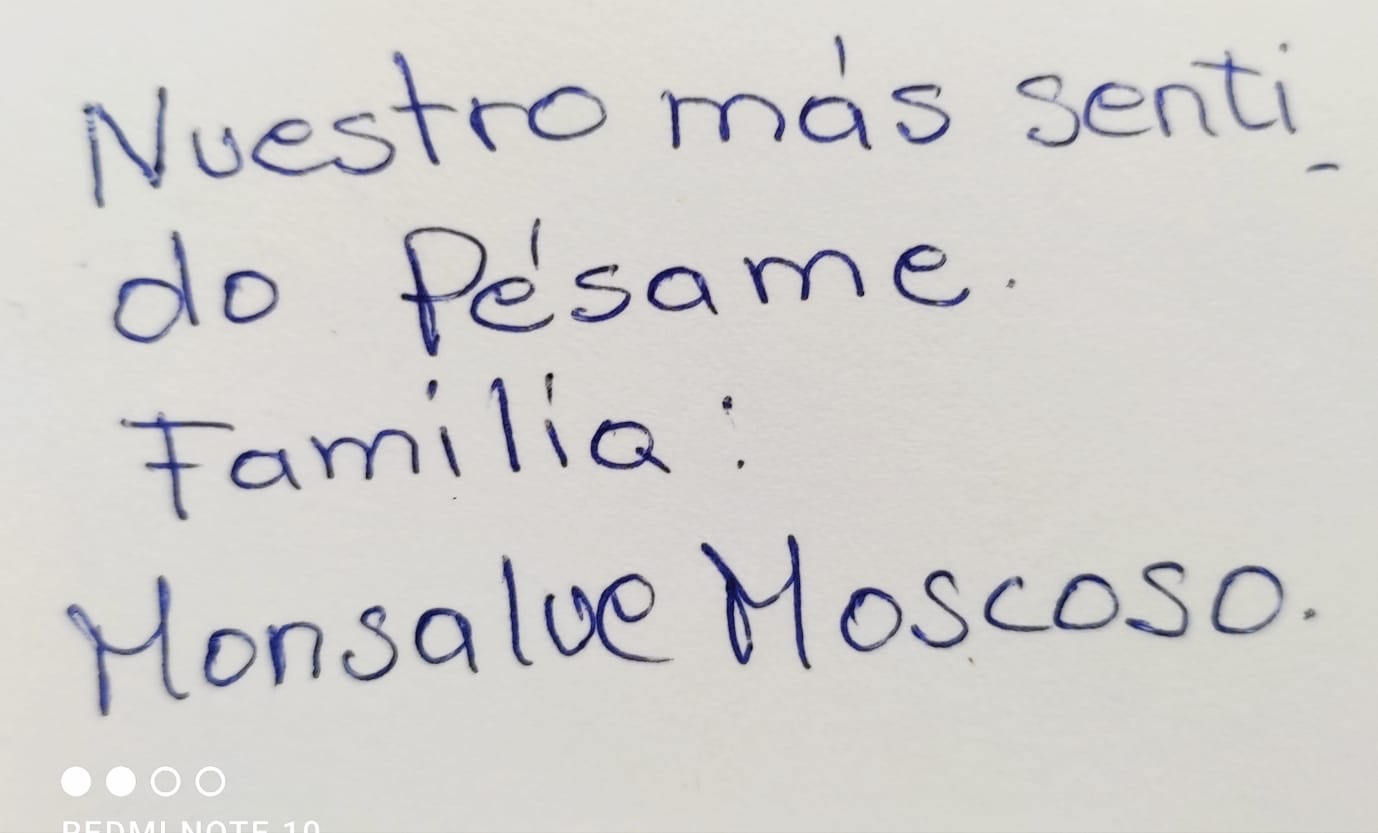 Nuestro más senti_
do Pésame.
Familia:
Monsalve Moscoso.
REDMI NOTE 10